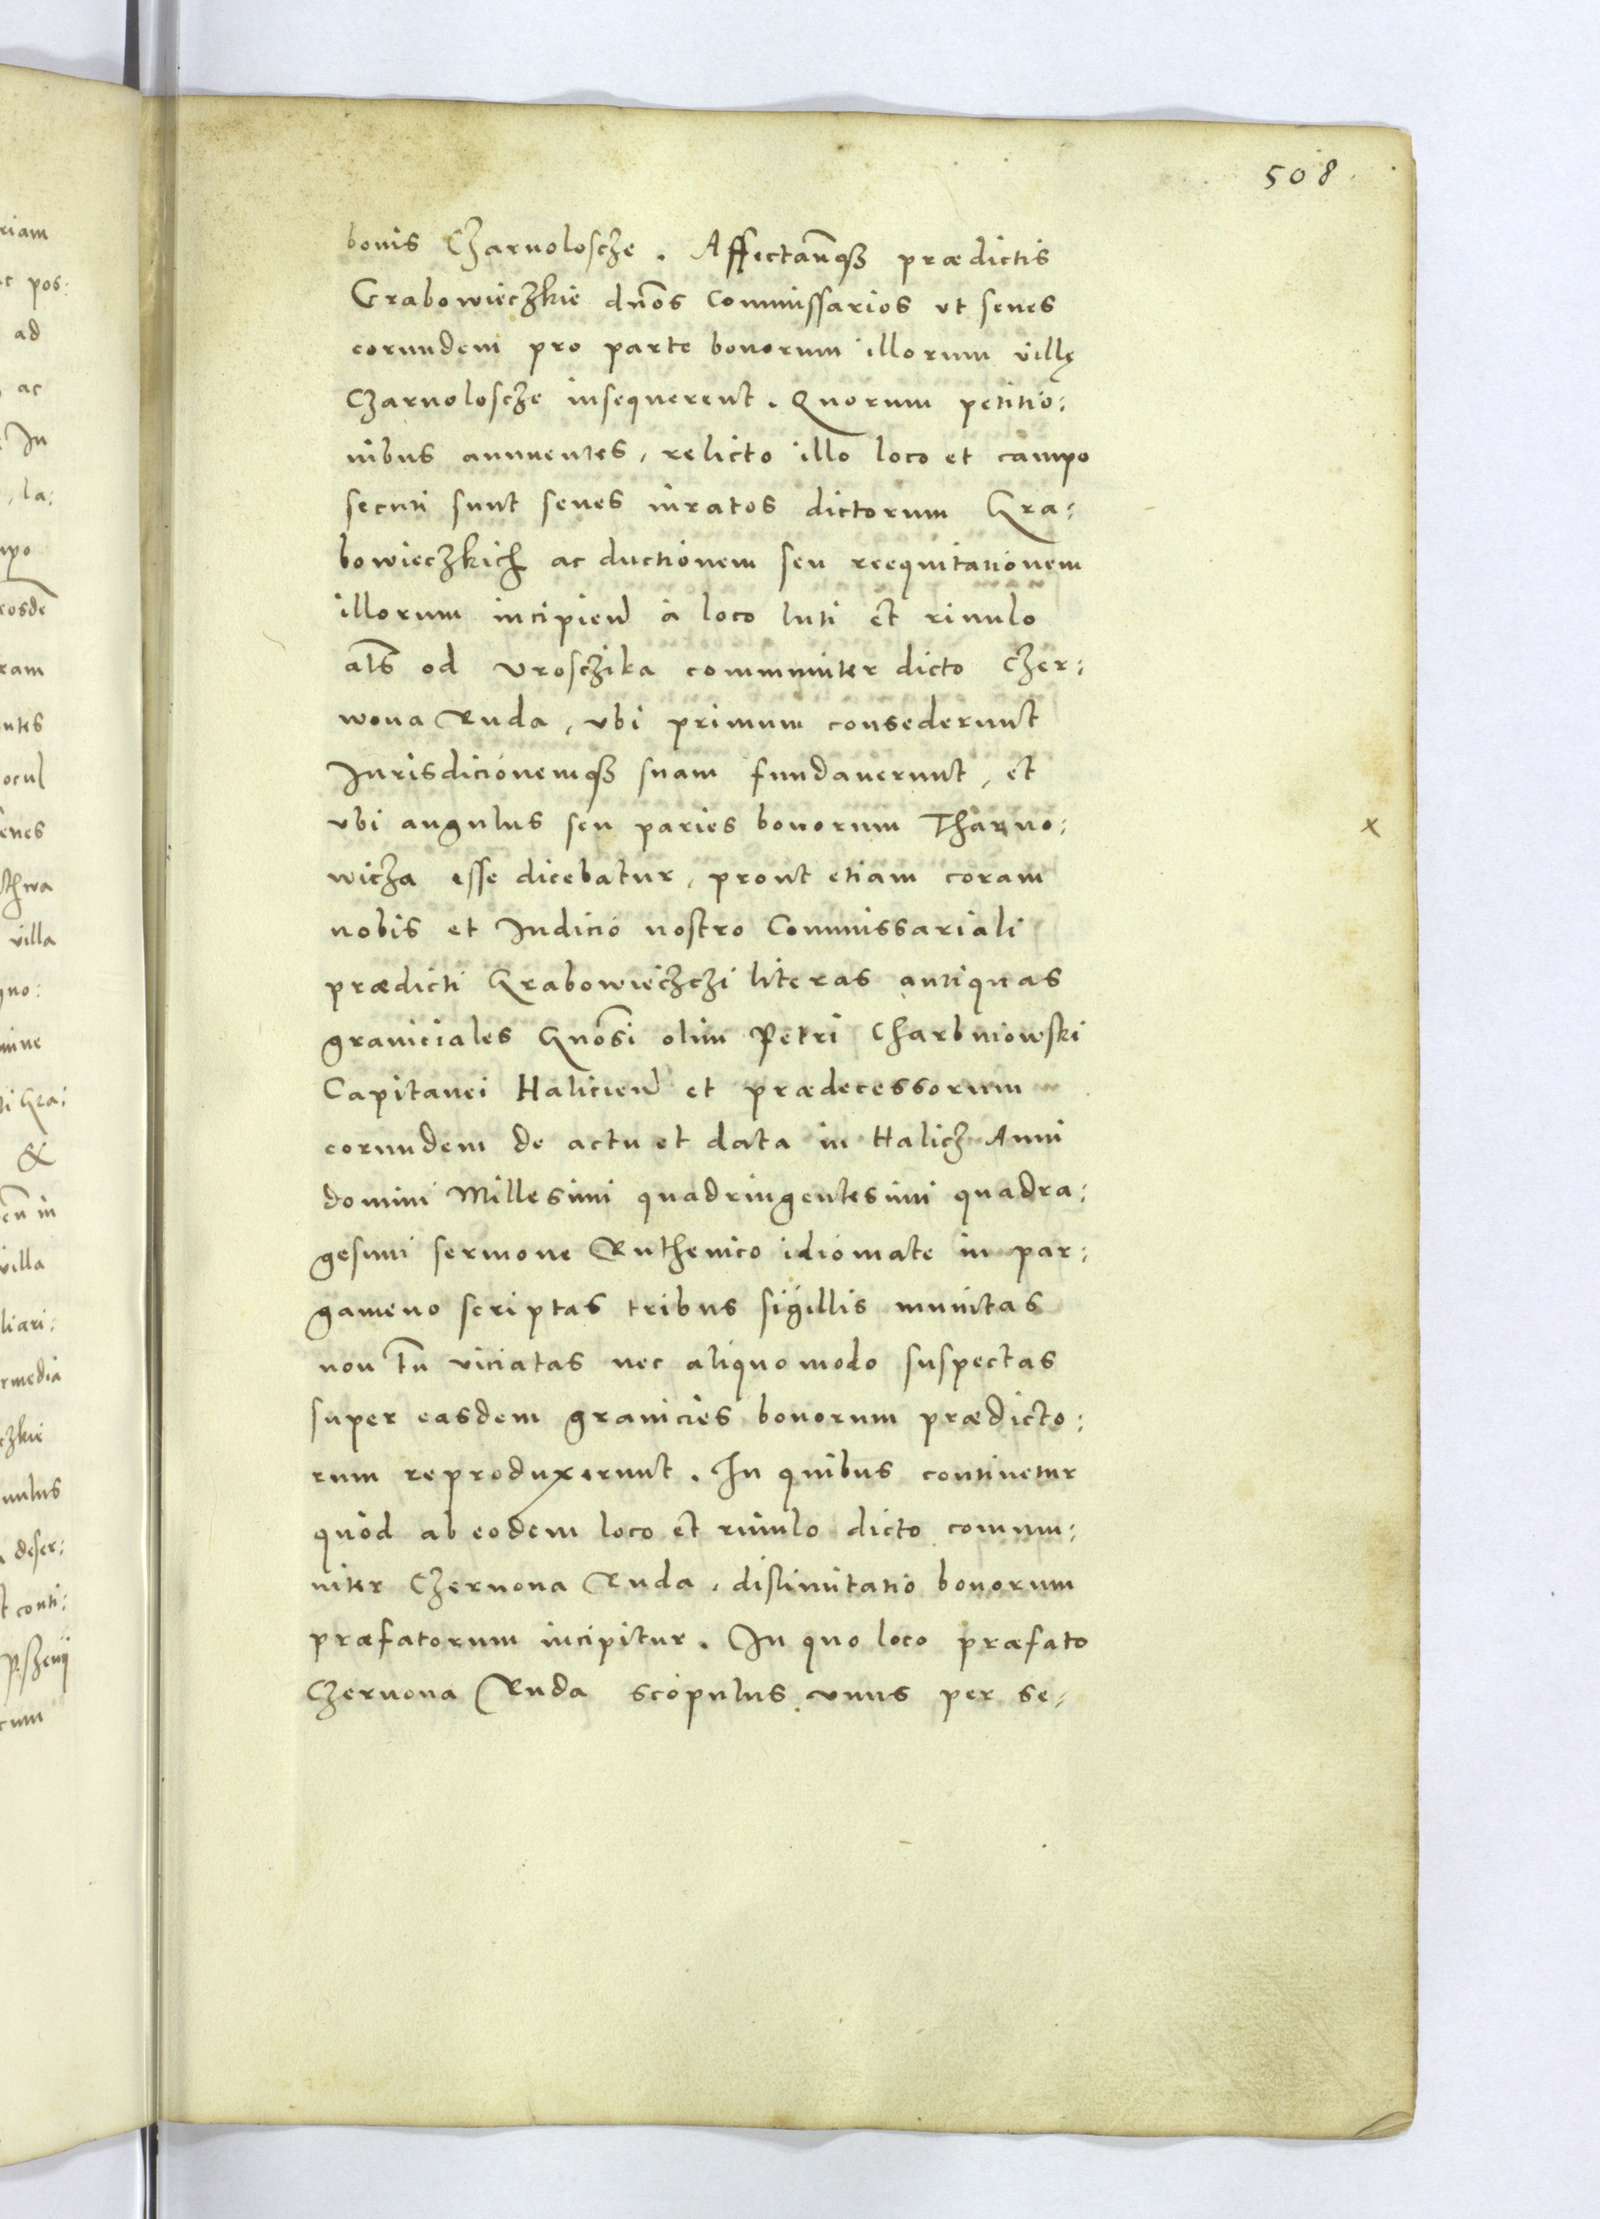 508
bonis Czarnoloscze. Affectan̄qꝫ prædictis
Grabowieczkie dn̄os Commissarios vt senes
eorundem pro parte bonorum illorum villę
Czarnoloscze insequerent. Quorum petitio:
nibus annuentes, relicto illo loco et campo
secuti sunt senes iuratos dictorum Gra:
bowieczkich ac ductionem seu reequitationem
illorum incipien̄ à loco luti et riuulo
al̄s od vrosczika communiter dicto Czer:
wona Ruda, vbi primum consederunt
Iurisdicionemqꝫ suam fundauerunt, et
vbi angulus seu paries bonorum Tharno:
wicza esse dicebatur, prout etiam coram
nobis et Iudicio nostro Commissariali
prædicti Grabowieczczi literas antiquas
graniciales Gn̄osi olim Petri Charbniowski
Capitanei Halicien̄ et prædecessorum
eorundem de actu et data in Halicz Anni
domini Millesimi quadringentesimi quadra:
gesimi sermone Ruthenico idiomate in par:
gameno scriptas tribus sigillis munitas
non tn̄ viciatas nec aliquo modo suspectas
super easdem granicies bonorum prædicto:
rum reproduxerunt. In quibus continetur
quòd ab eodem loco et riuulo dicto commu:
niter Czeruona Ruda, dislimitatio bonorum
præfatorum incipitur. In quo loco præfato
Czeruona Ruda scopulus vnus per se:
x